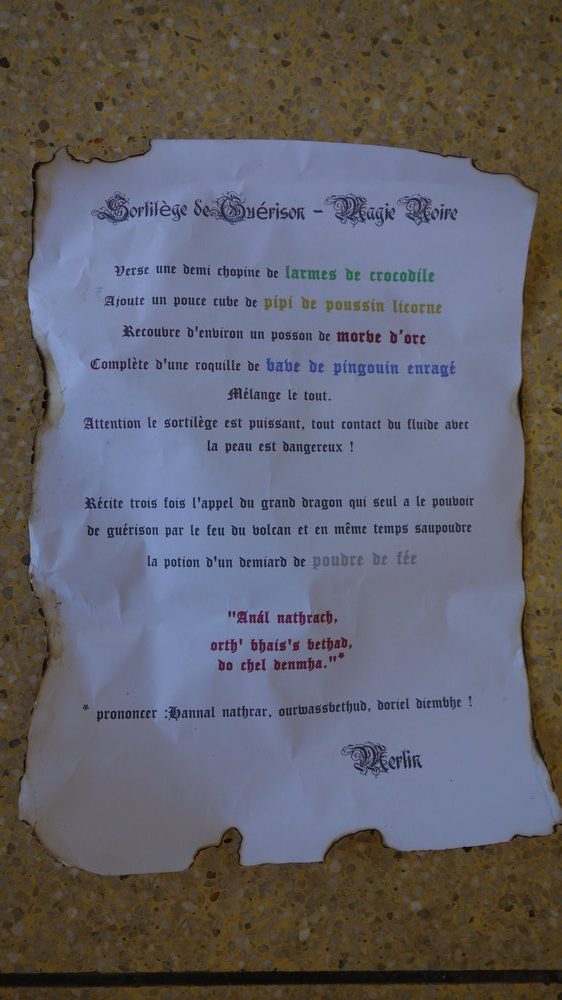 Sortilège de Guérison - Magie Noire
Verse une demi chopine de larmes de crocodile
Ajoute un pouce cube de pipi de poussin licorne
Recouvre d'environ un posson de morve d'orc
Complète d'une roquille de bave de pingouin enragé
Mélange le tout.
Attention le sortilège est puissant, tout contact du fluide avec
la peau est dangereux !
Récite trois fois l'appel du grand dragon qui seul a le pouvoir
de guérison par le feu du volcan et en même temps saupoudre
la potion d'un demiard de poudre de fée
"Anál nathrach,
orth' bhais's bethad,
do chel denmha."*
* prononcer :Hannal nathrar, ourwassbethud, doriel diembhe !
Merlin